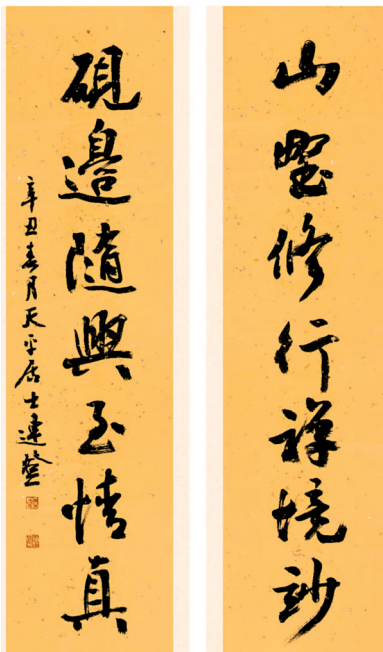 山壑修行禅境妙
砚邊隨興至情真
辛丑春月天平居士連登